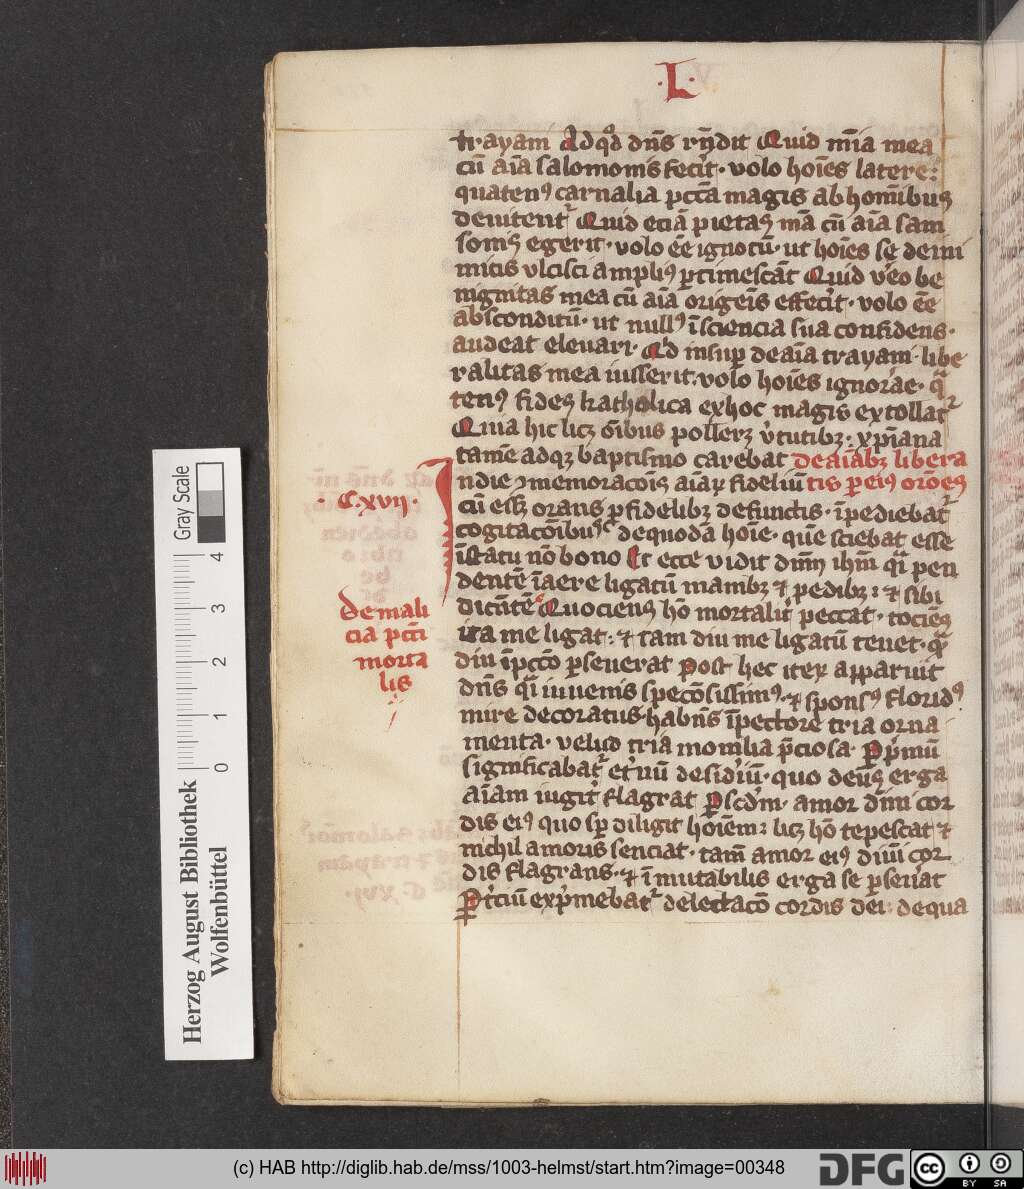 ·L·
trayani Ad qd dn̄s rn̄dit Quid mīa mea
cū aīa salomonis fecit · volo hoīes latere:
quatenꝰ carnalia pcc̄a magis ab hominibus
deuitent᷑ Quid eciā pietas mā cū aīa sam
sonis egerit · volo eē ignotū · ut hoīes se de ini
micis vlcisci ampliꝰ ꝑtimescāt Quid vͦo be
nignitas mea cū aīa origeīs effecit · volo eē
absconditū · ut nullꝰ ī sciencia sua confidens ·
audeat eleuari · Qd insuꝑ de aīa trayani · libe
ralitas mea iusserit · volo hoīes ignorāe · q̄
tenꝰ fides katholica ex hoc magis extollat᷑
Quia hic licꝫ oībus polleret v̓tutibꝫ · xp̄iana
tamē adqꝫ baptismo carebat de aīabꝫ libera
In die ꝯmemoracōis aīaꝝ fideliū tis ꝑ eiꝰ orōes
· C.xvii ·
cū eissꝫ orans ꝓ fidelibꝫ defunctis · īpediebat᷑
cogitacōibus de quodā hoīe · quē sciebat esse
ī statu nō bono Et ecce vidit dnm̄ ihm̄ q̄i pen
dentē ī aere ligatū manibꝫ ⁊ pedibꝫ : ⁊ sibi
dicētē Quociens hō mortalit᷑ peccat · tociens
ita me ligat : ⁊ tam diu me ligatū tenet · q̄
diu ī pctō ꝑseuerat Post hec iteꝝ apparuit
de mali
cia pcc̄i
morta
lis
dn̄s q̄i iuuenis speciōsissimꝰ · ⁊ sponsꝰ floridꝰ
mire decoratus · habn̄s ī pectore tria orna
menta · velud tria monilia p̄ciosa · Ꝑ p̄mū
significabat᷑ et̓nū desid̓iū · quo deus erga
aīam iugit᷑ flagrat Ꝑ scd̄m · amor diui cor
dis eiꝰ quo sꝑ diligit hoīem : licꝫ hō tepescat ⁊
nichil amoris senciat · tam̄ amor eiꝰ diui cor
dis flagrans · ⁊ īmutabilis erga se ꝑseu̓at
Ꝑ t̓ciū exp̓mebat᷑ delectacō cordis dei : de qua
Herzog August Bibliothek
Wolfenbüttel
0 1 2 3 4
Gray Scale
(c) HAB http://diglib.hab.de/mss/1003-helmst/start.htm?image=00348
DFG
cc BY SA